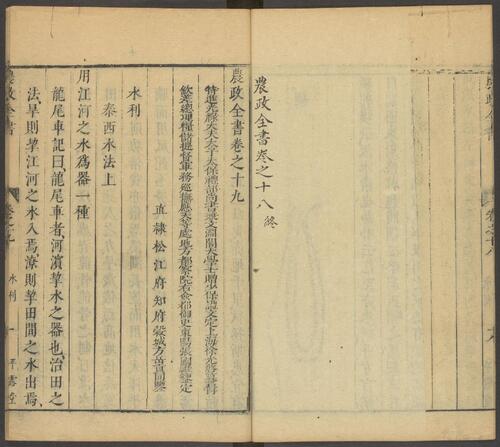 農政全書卷之十八終
農政全書卷之十九
特進光祿大夫太子太保禮部尚書兼文淵閣大學士贈少保諡文定上海徐光啓纂輯
欽差總理糧儲提督軍務巡撫應天等處地方都察院右僉都御史東陽張國維鑒定
直隸松江府知府穀城方岳貢同鑒
水利
泰西水法上
用江河之水爲器一種
龍尾車記曰龍尾車者河濱挈水之器也治田之
法旱則挈江河之水入焉潦則挈田間之水出焉
農政全書
卷之十九
水利
一
平露堂